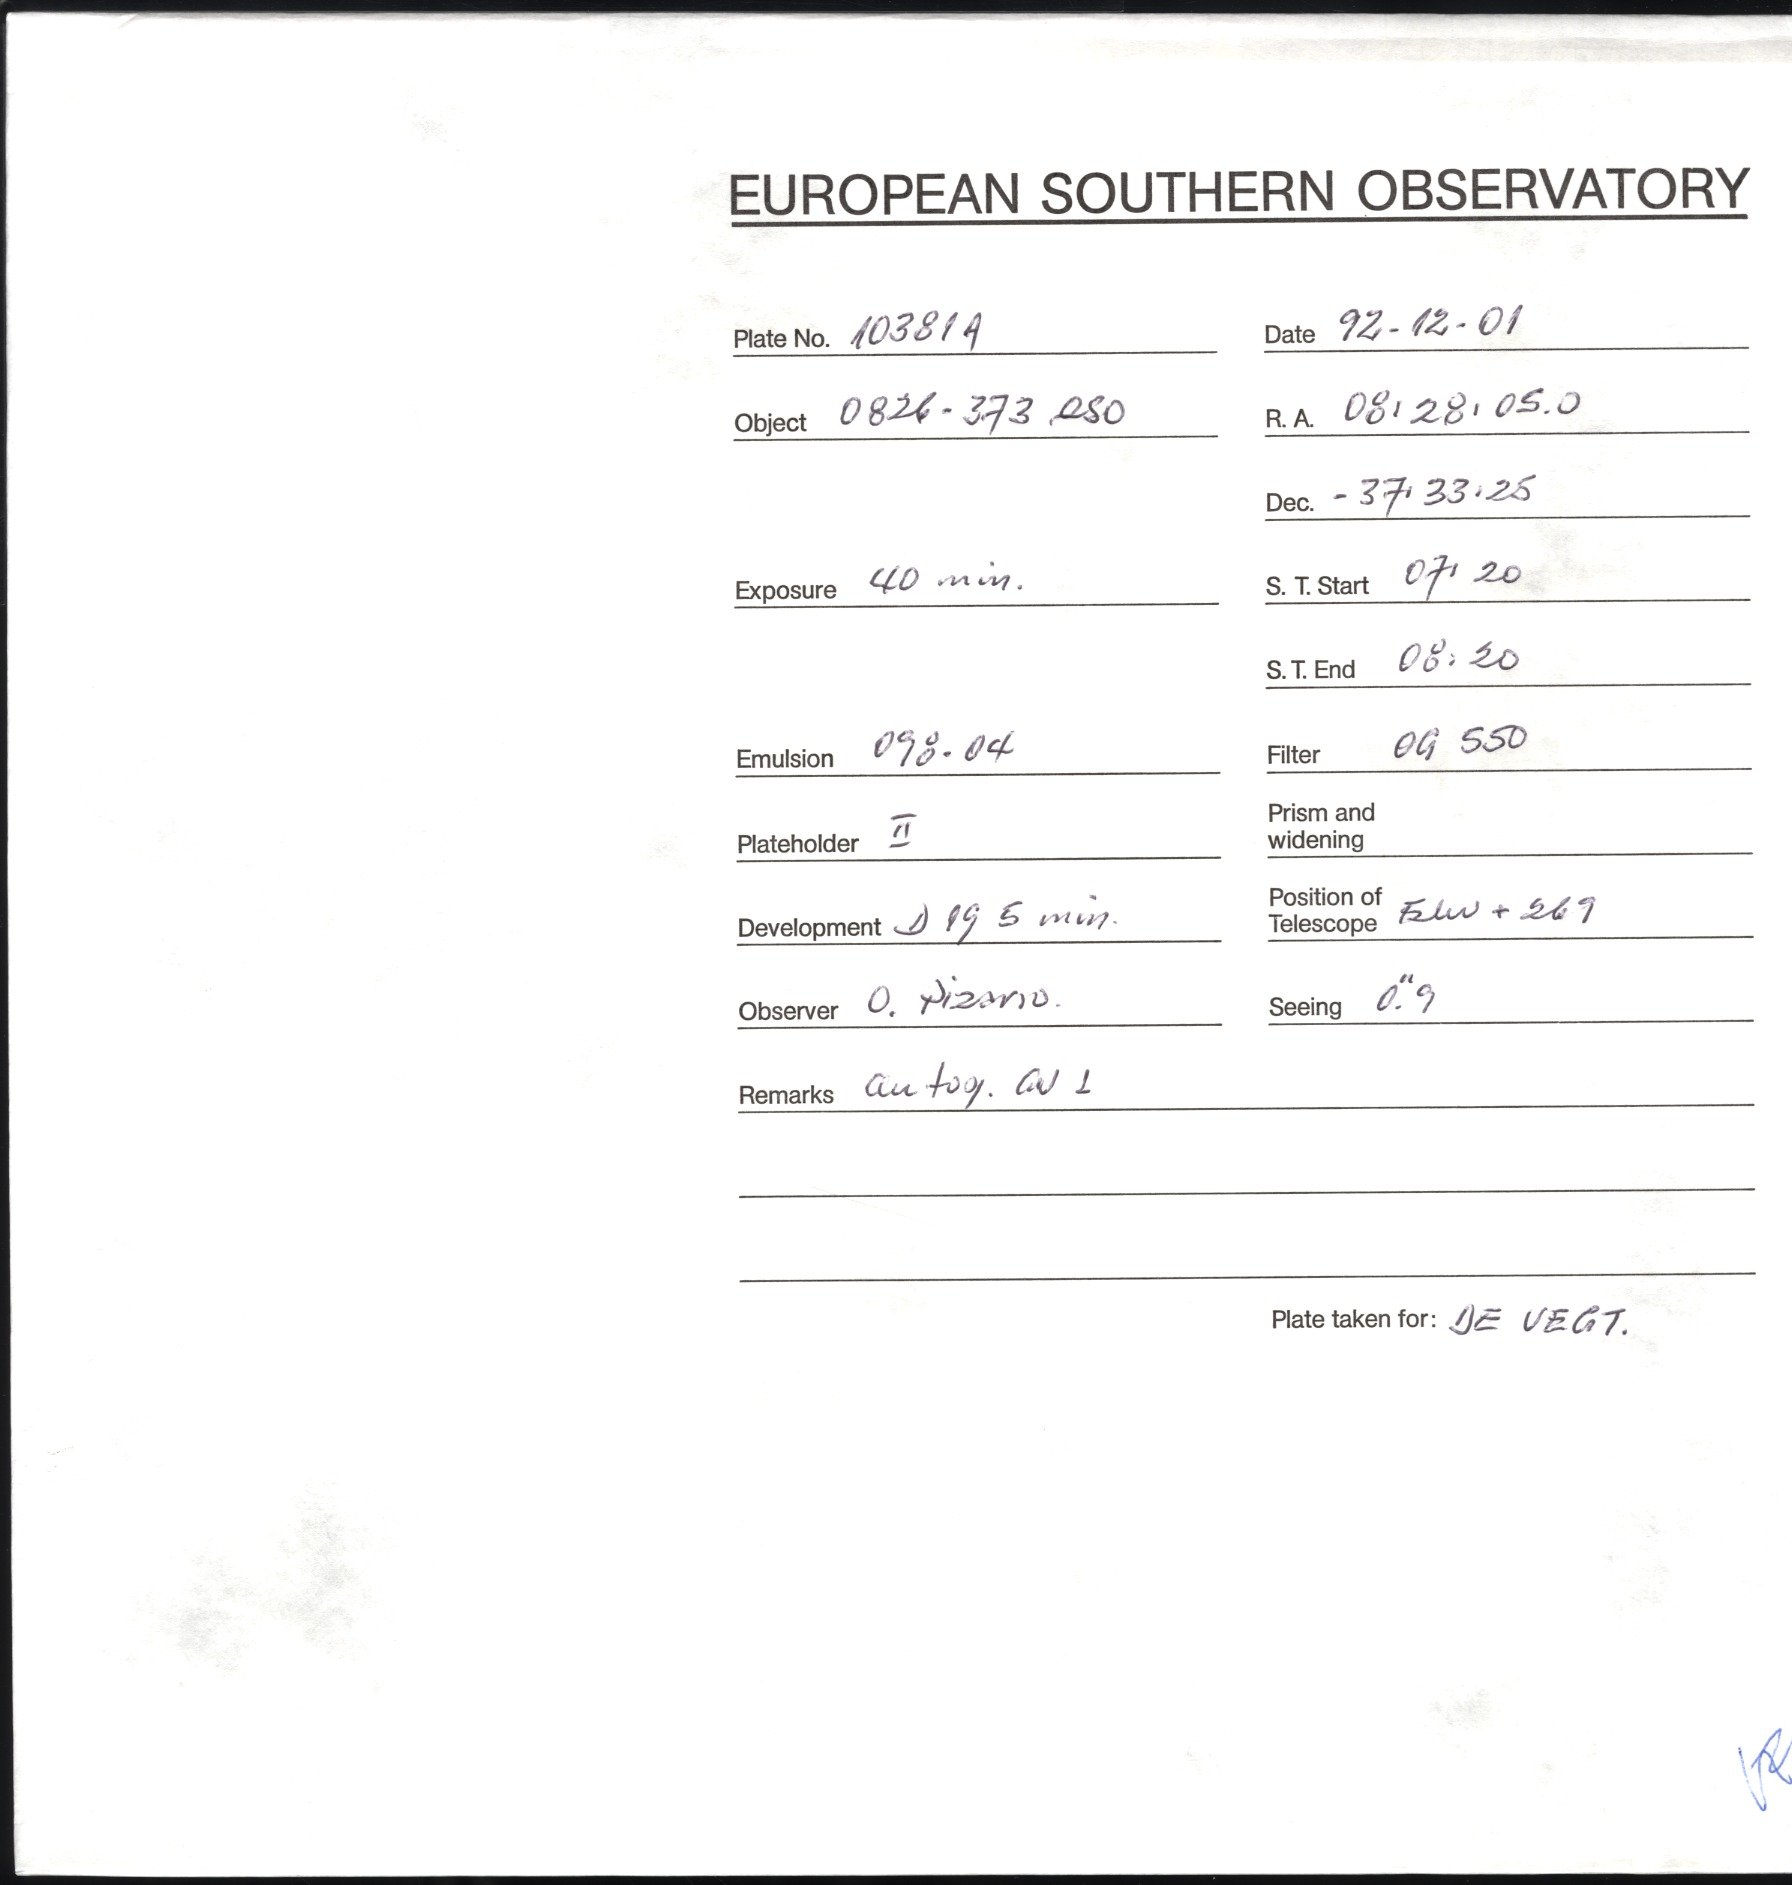 EUROPEAN SOUTHERN OBSERVATORY
Plate No. 10381A Date 92-12-01
Object 0826-373 QSO R. A. 08:28:05.0
Dec. -37:33:25
Exposure 40 min. S. T. Start 07:20
S. T. End 08:20
Emulsion 098-04 Filter OG 550
Plateholder II Prism and
widening
Development D 19 5 min. Position of
Telescope + 269
Observer O. Pizarro. Seeing 0."9
Remarks autog. 1
Plate taken for: DE VEGT.